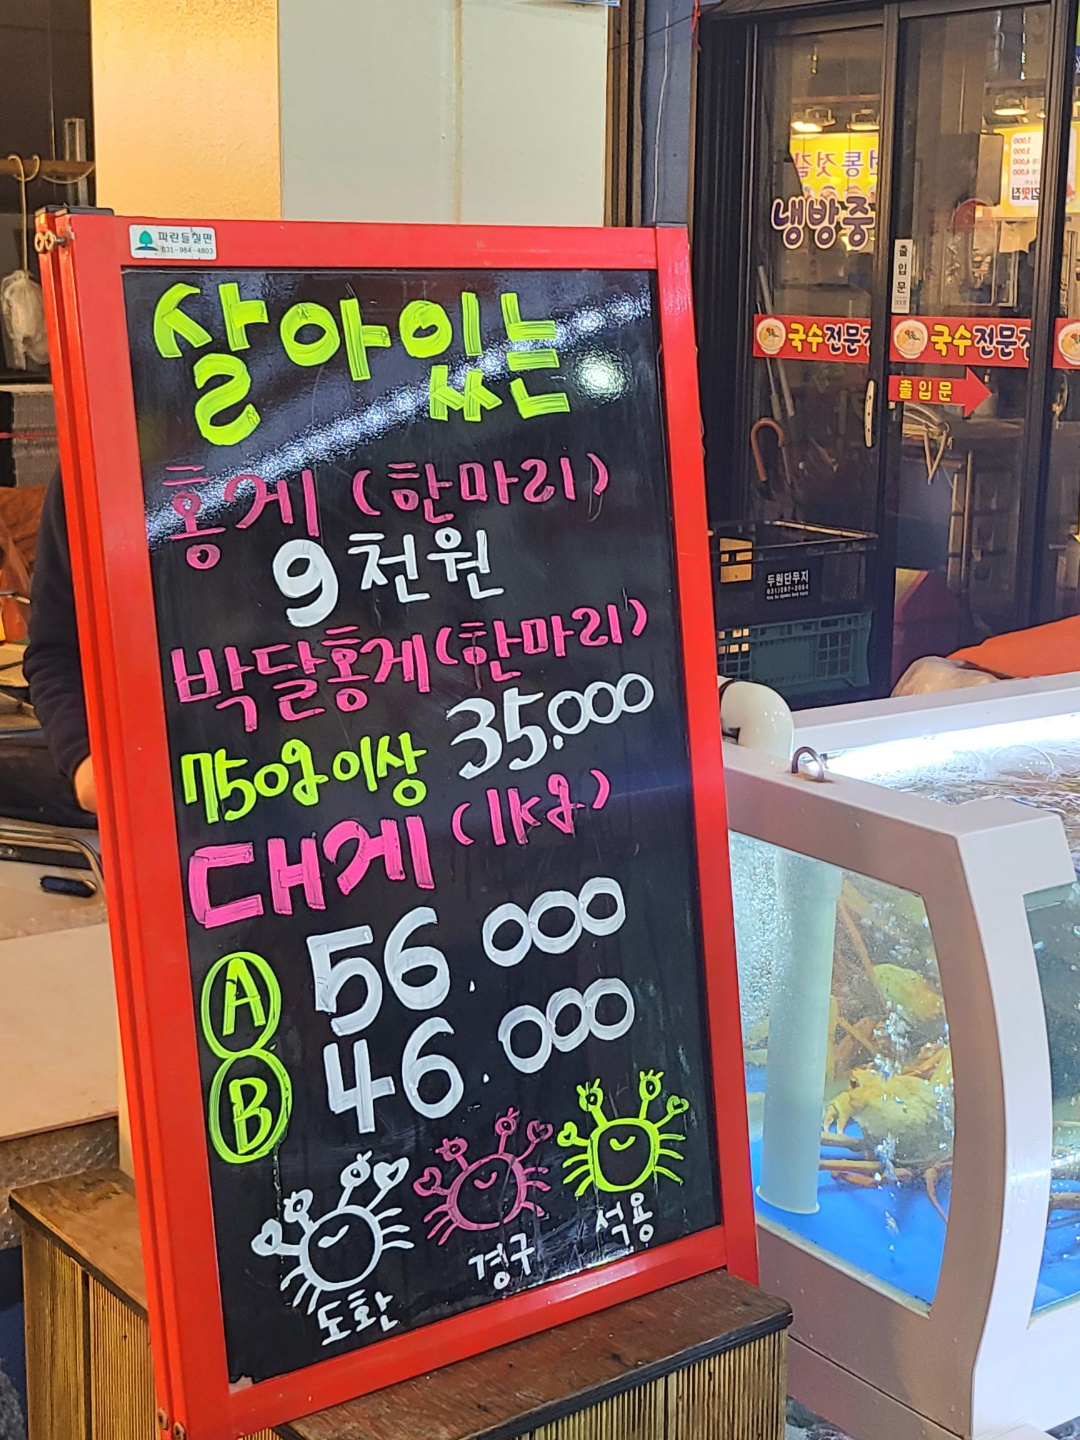 파란들칠판
031-984-4803
살아있는
홍게 (한마리)
9천원
박달홍게(한마리)
750g이상 35.000
대게 (1kg)
A 56.000
B 46.000
도환
경구
석용
냉방중
출입문
국수전문
국수전문
출입문
두원단무지